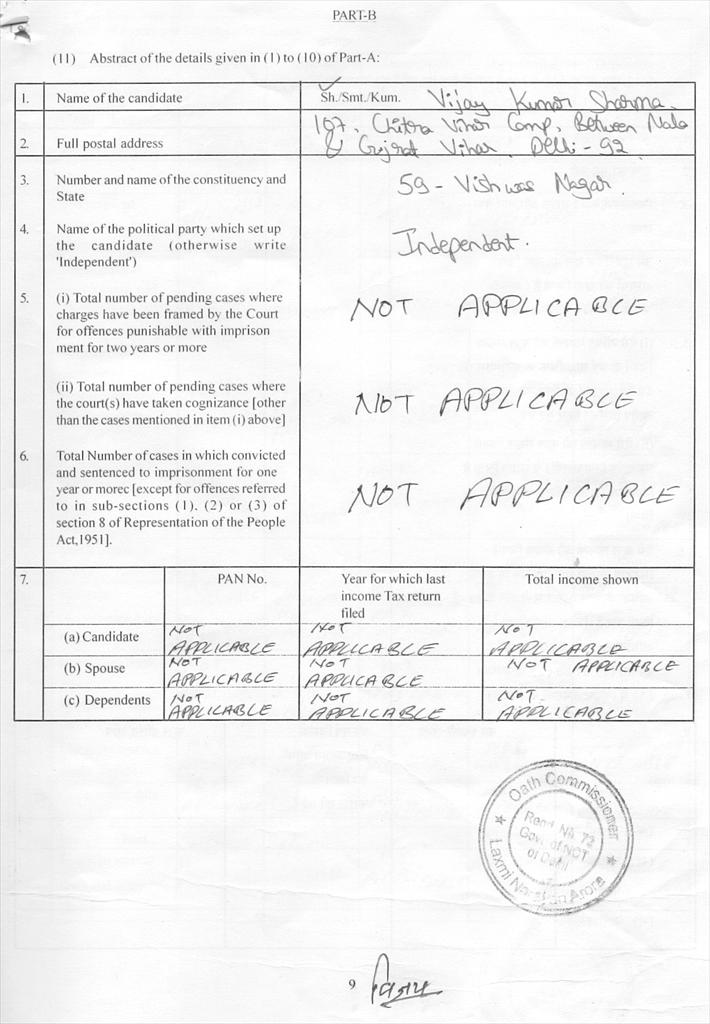 PART-B
(11) Abstract of the details given in (1) to (10) of Part-A:
1. Name of the candidate Sh./Smt./Kum. Vijay Kumar Sharma.
2. Full postal address 107, Chitra Vihar Comp. Between Nala
& Gujrat Vihar, Delhi - 92
3. Number and name of the constituency and
State 59 - Vishwas Nagar.
4. Name of the political party which set up
the candidate (otherwise write
'Independent') Independent.
5. (i) Total number of pending cases where
charges have been framed by the Court
for offences punishable with imprison
ment for two years or more NOT APPLICABLE
(ii) Total number of pending cases where
the court(s) have taken cognizance [other
than the cases mentioned in item (i) above] NOT APPLICABLE
6. Total Number of cases in which convicted
and sentenced to imprisonment for one
year or morec [except for offences referred
to in sub-sections (1), (2) or (3) of
section 8 of Representation of the People
Act,1951]. NOT APPLICABLE
7. PAN No. Year for which last
income Tax return
filed Total income shown
(a) Candidate NOT APPLICABLE NOT APPLICABLE NOT APPLICABLE
(b) Spouse NOT APPLICABLE NOT APPLICABLE NOT APPLICABLE
(c) Dependents NOT APPLICABLE NOT APPLICABLE NOT APPLICABLE
Oath Commissioner
Regd. No. 72
Govt. of NCT
of Delhi
Laxmi Narayan Arora
9 विजय